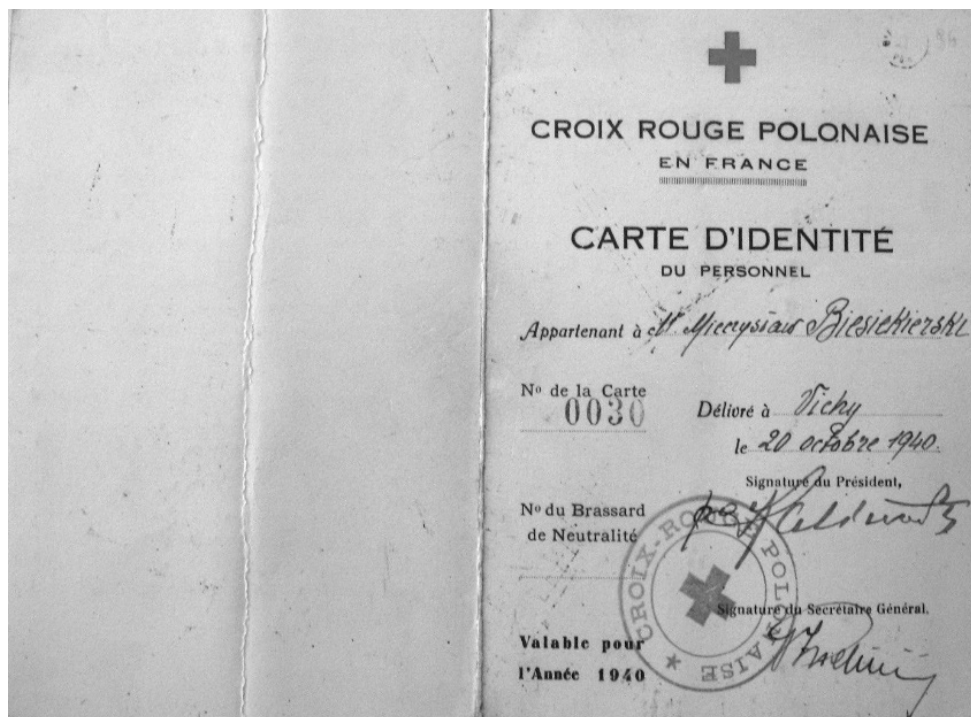 CROIX ROUGE POLONAISE
EN FRANCE
CARTE D'IDENTITÉ
DU PERSONNEL
Appartenant à Mr. Mieczysław Biesiekierski
No de la Carte
0030
Délivré à Vichy
le 20 octobre 1940.
Signature du Président,
No du Brassard
de Neutralité
CROIX-ROUGE POLONAISE
Signature du Secrétaire Général.
Valable pour
l'Année 1940